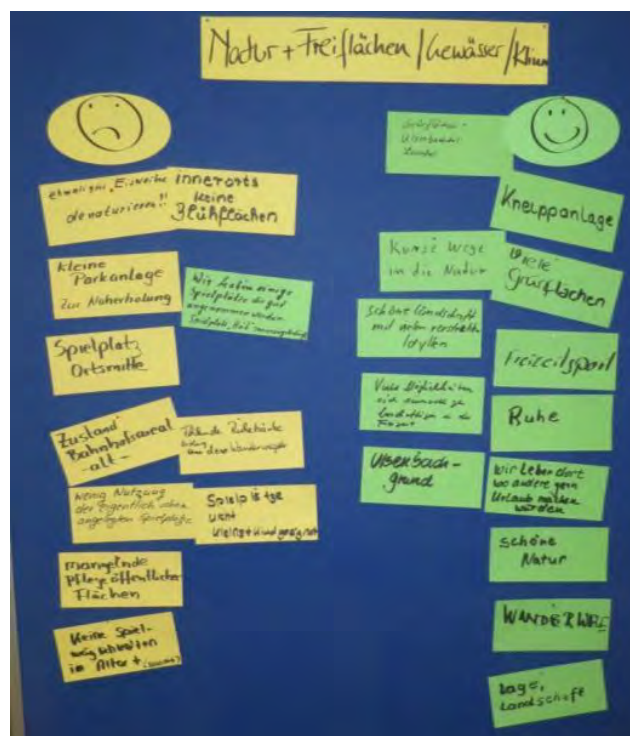 Natur + Freiflächen / Gewässer / Klima
ehemaligen "Eisweihe
denaturieren!!
innerorts
keine
Blühflächen
kleine
Parkanlage
zur Naherholung
Wir haben einige
Spielplätze die gut
angenommen werden
Spielplatz
Spielplatz
Ortsmitte
Zustand
Bahnhofsareal
-alt-
Fehlende Ruhebänke
an den Wanderwegen
wenig Nutzung
der eigentlich schön
angelegten Spielplätze
Spielplätze
nicht
kleinstkindgeeignet
mangelnde
Pflege öffentlicher
Flächen
Keine Spiel-
möglichkeiten
im Alter +
Grünflächen -
Ulsenbach
Kneippanlage
Kurze Wege
in die Natur
Viele
Grünflächen
schöne Landschaft
mit vielen
Idyllen
Freizeitsport
Viele Möglichkeiten
sich
in der
Freizeit
Ruhe
Ulsenbach-
grund
Wir leben dort
wo andere gern
Urlaub machen
würden
schöne
Natur
WANDERWEGE
Lage,
Landschaft